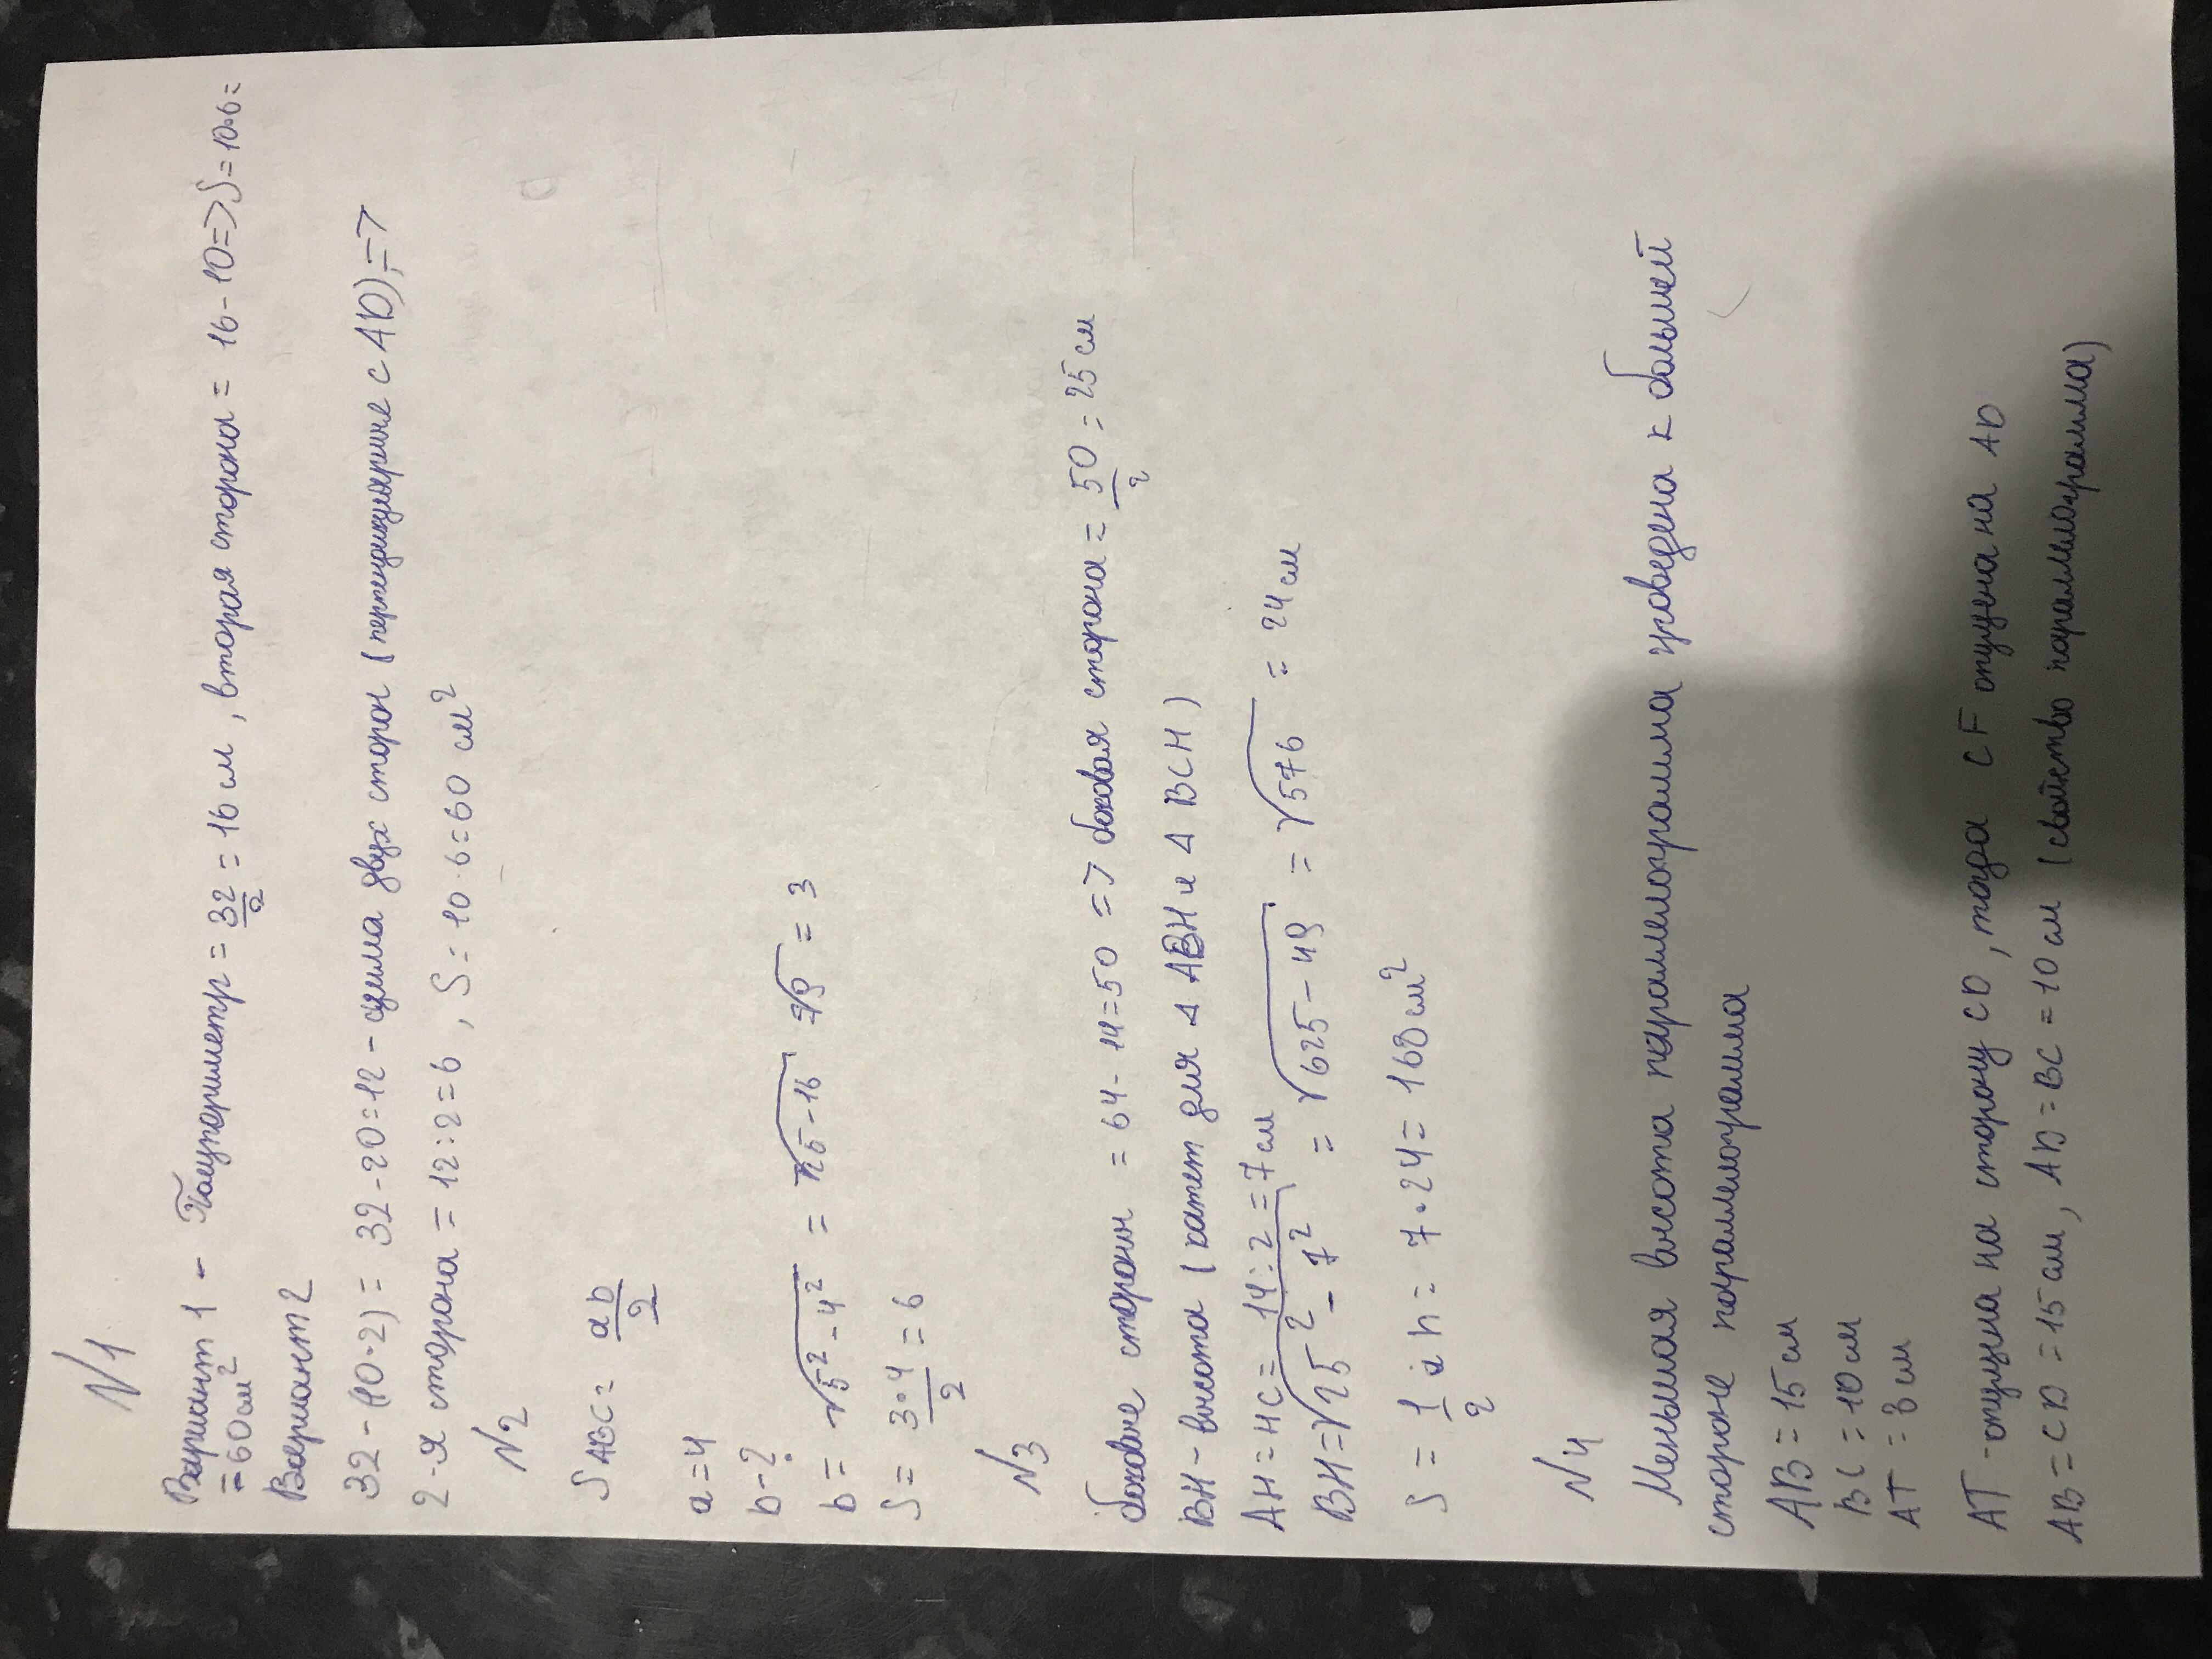 N1
Вариант 1 - Полупериметр = 32/2 = 16 см, вторая сторона = 16-10 => S = 10·6 =
= 60 см²
Вариант 2
32 - (10·2) = 32 - 20 = 12 - сумма двух сторон (перпендикулярные с AD), =>
2-я сторона = 12:2 = 6, S = 10·6 = 60 см²
N2
S ABC = ab/2
a = 4
b - ?
b = √5² - 4² = √25 - 16 = √9 = 3
S = 3·4/2 = 6
N3
боковые стороны = 64 - 14 = 50 => боковая сторона = 50/2 = 25 см
BH - высота (катет для Δ ABH и Δ BCH)
AH = HC = 14:2 = 7 см
BH = √25² - 7² = √625 - 49 = √576 = 24 см
S = 1/2 a h = 7·24 = 168 см²
N4
Меньшая высота параллелограмма проведена к большей
стороне параллелограмма
AB = 15 см
BC = 10 см
AT = 8 см
AT - опущена на сторону CD, тогда CF опущена на AD
AB = CD = 15 см, AD = BC = 10 см (свойство параллелограмма)